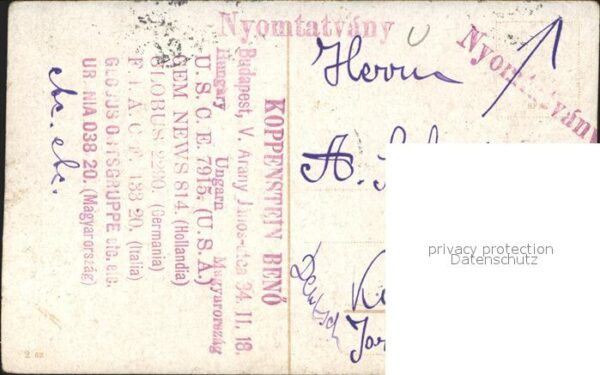 Nyomtatvány
Nyomtatvány
Herrn
A.
KOPPENSTEIN BENŐ
Budapest, V. Arany János-utca 34. II. 18.
Hungary Ungarn Magyarország
U. S. C. E. 7915. (U. S. A.)
GEM NEWS 814. (Hollandia)
GLOBUS 2230. (Germania)
133 20. (Italia)
GLOBUS ORTSGRUPPE etc. etc.
038 20. (Magyarország)
etc. etc.
privacy protection
Datenschutz